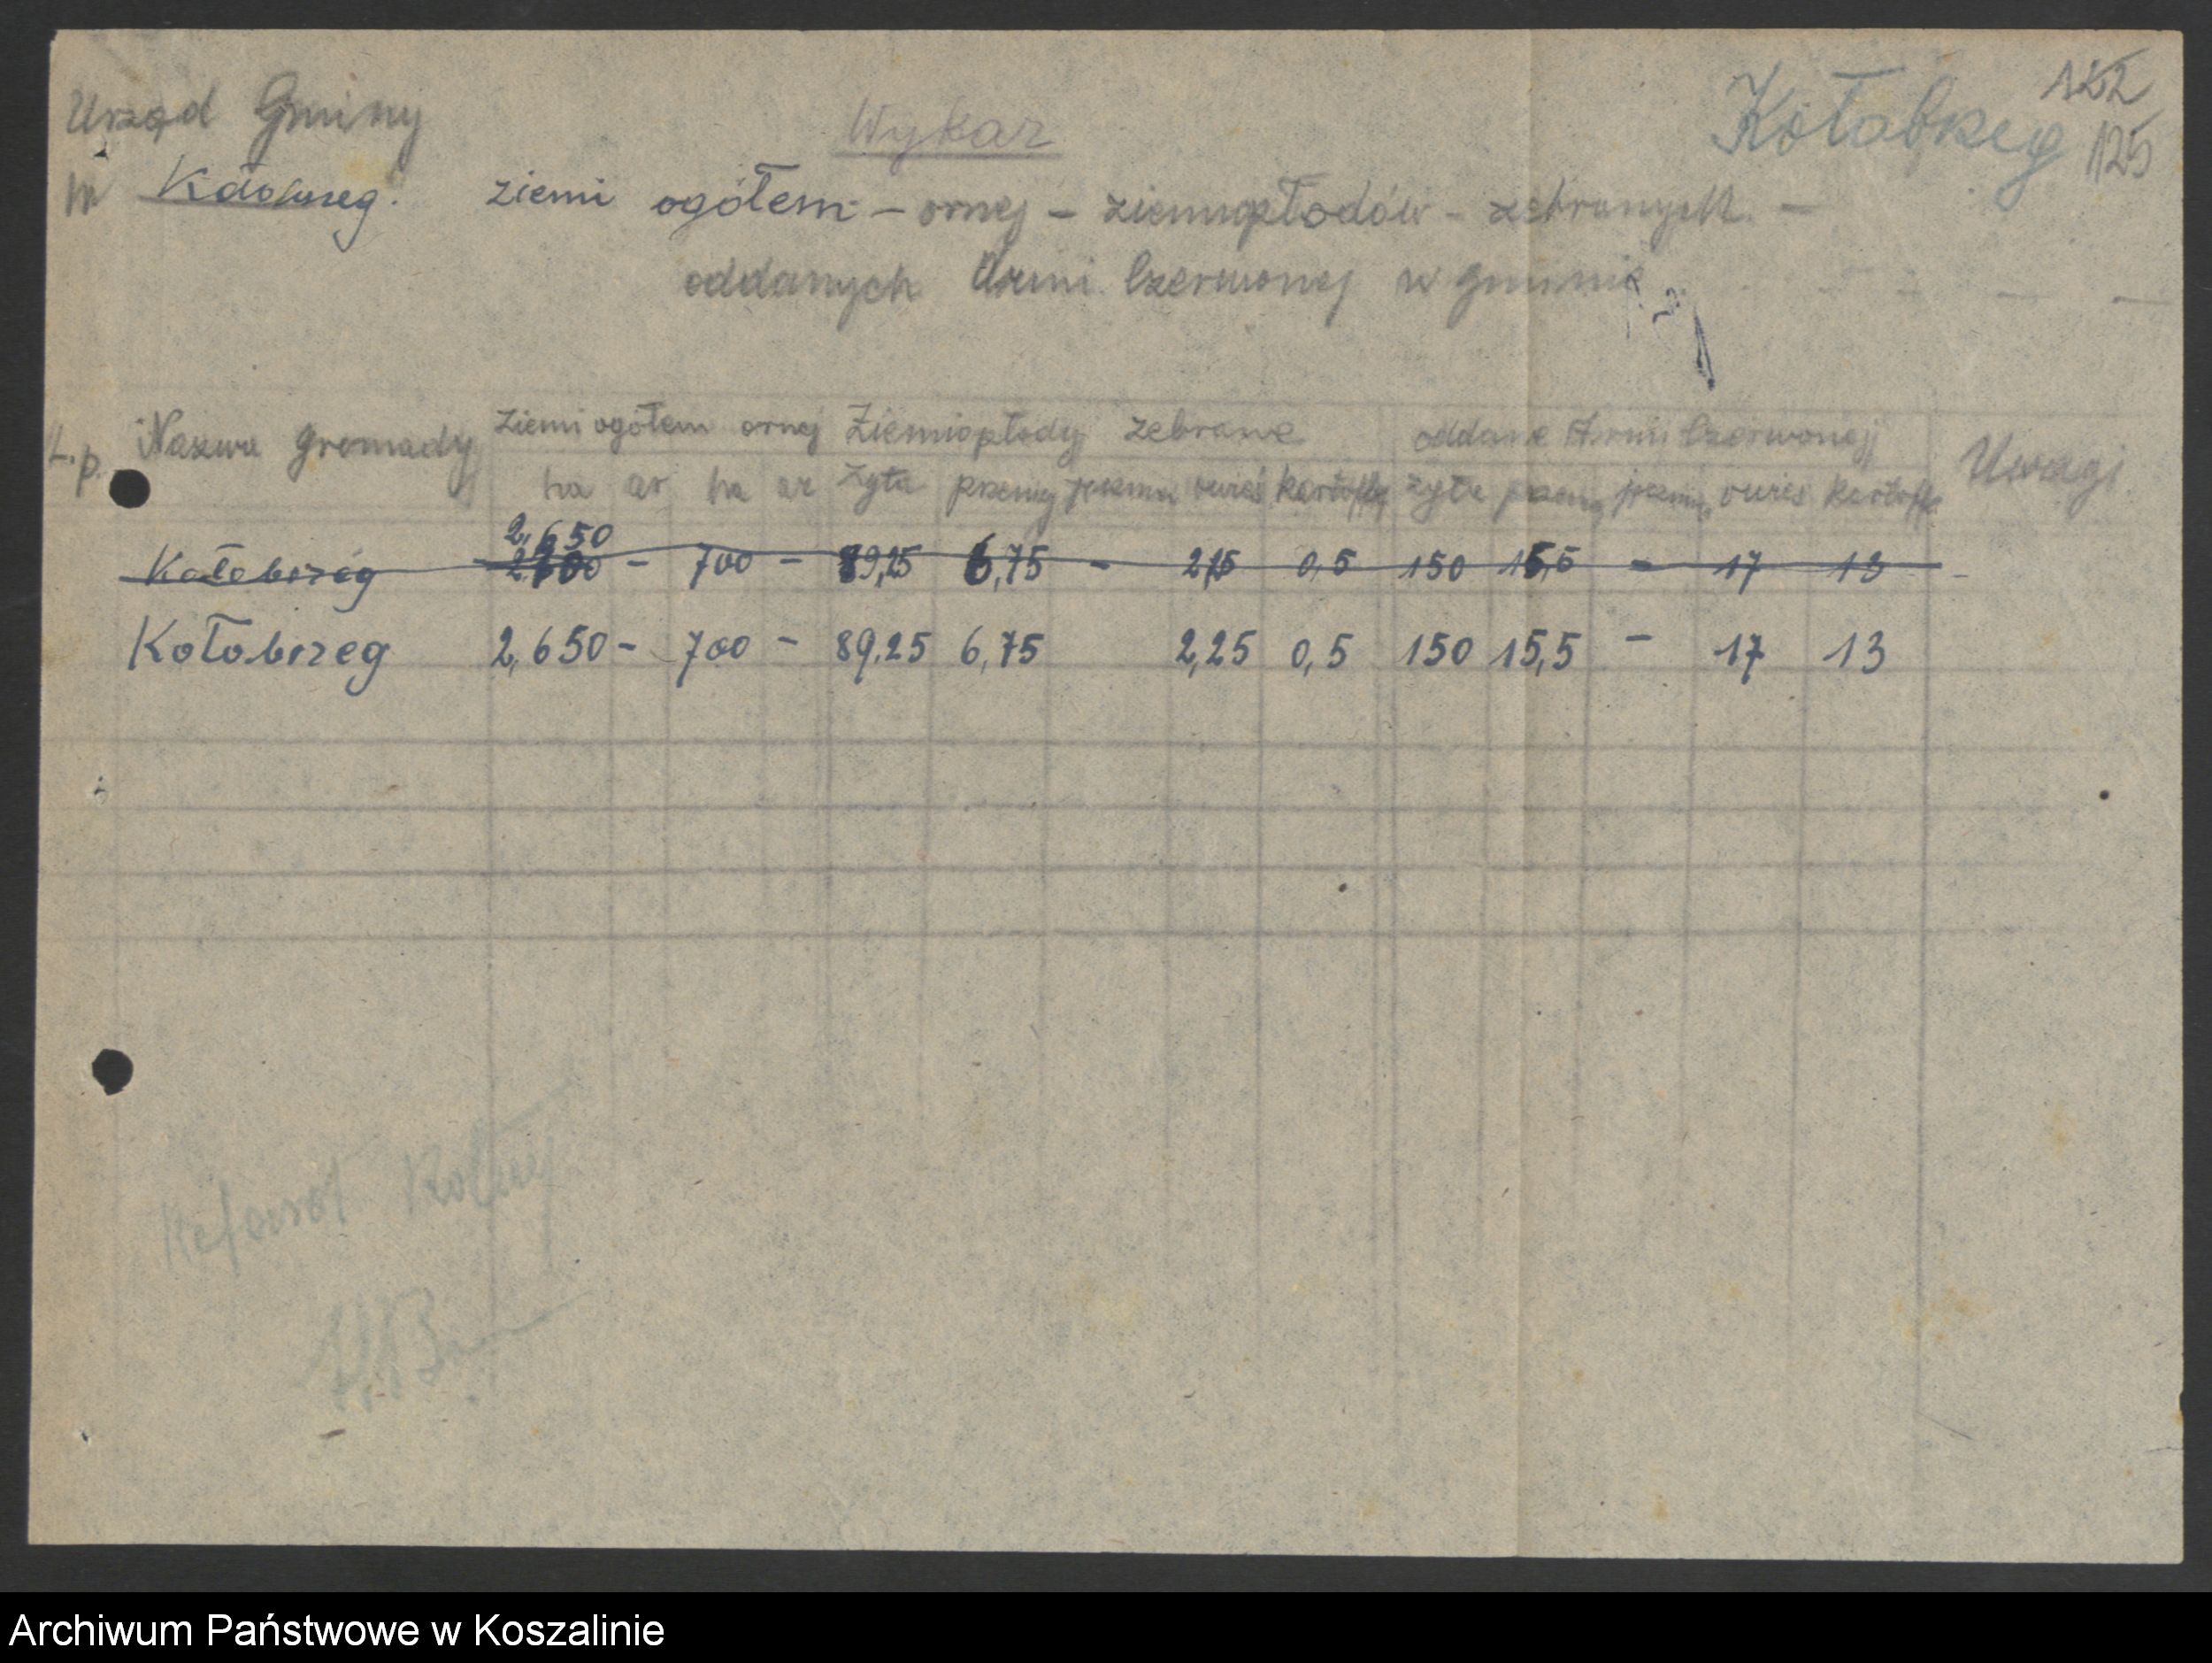 Urząd Gminy
w Kołobrzeg.
Kołobrzeg
122
125
Wykaz
ziemi ogółem – ornej – ziemiopłodów – zebranych. –
oddanych Armi Czerwonej w gminie
L.p. Nazwa gromady Ziemi ogółem ornej Ziemiopłody zebrane oddane Armii Czerwonej Uwagi
ha ar ha ar żyta pszenicy jęczmień owies kartofle żyta pszenicy jęczmień owies kartofle
2.650
Kołobrzeg - 700 - 89,25 6,75 - 0,5 150 15,5 - 17 13 -
Kołobrzeg 2,650 - 700 - 89,25 6,75 2,25 0,5 150 15,5 - 17 13
Referent Rolny
Archiwum Państwowe w Koszalinie